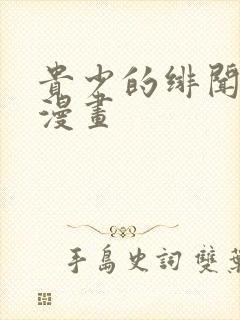 貴少的緋聞
漫畫
手島史詞 雙葉